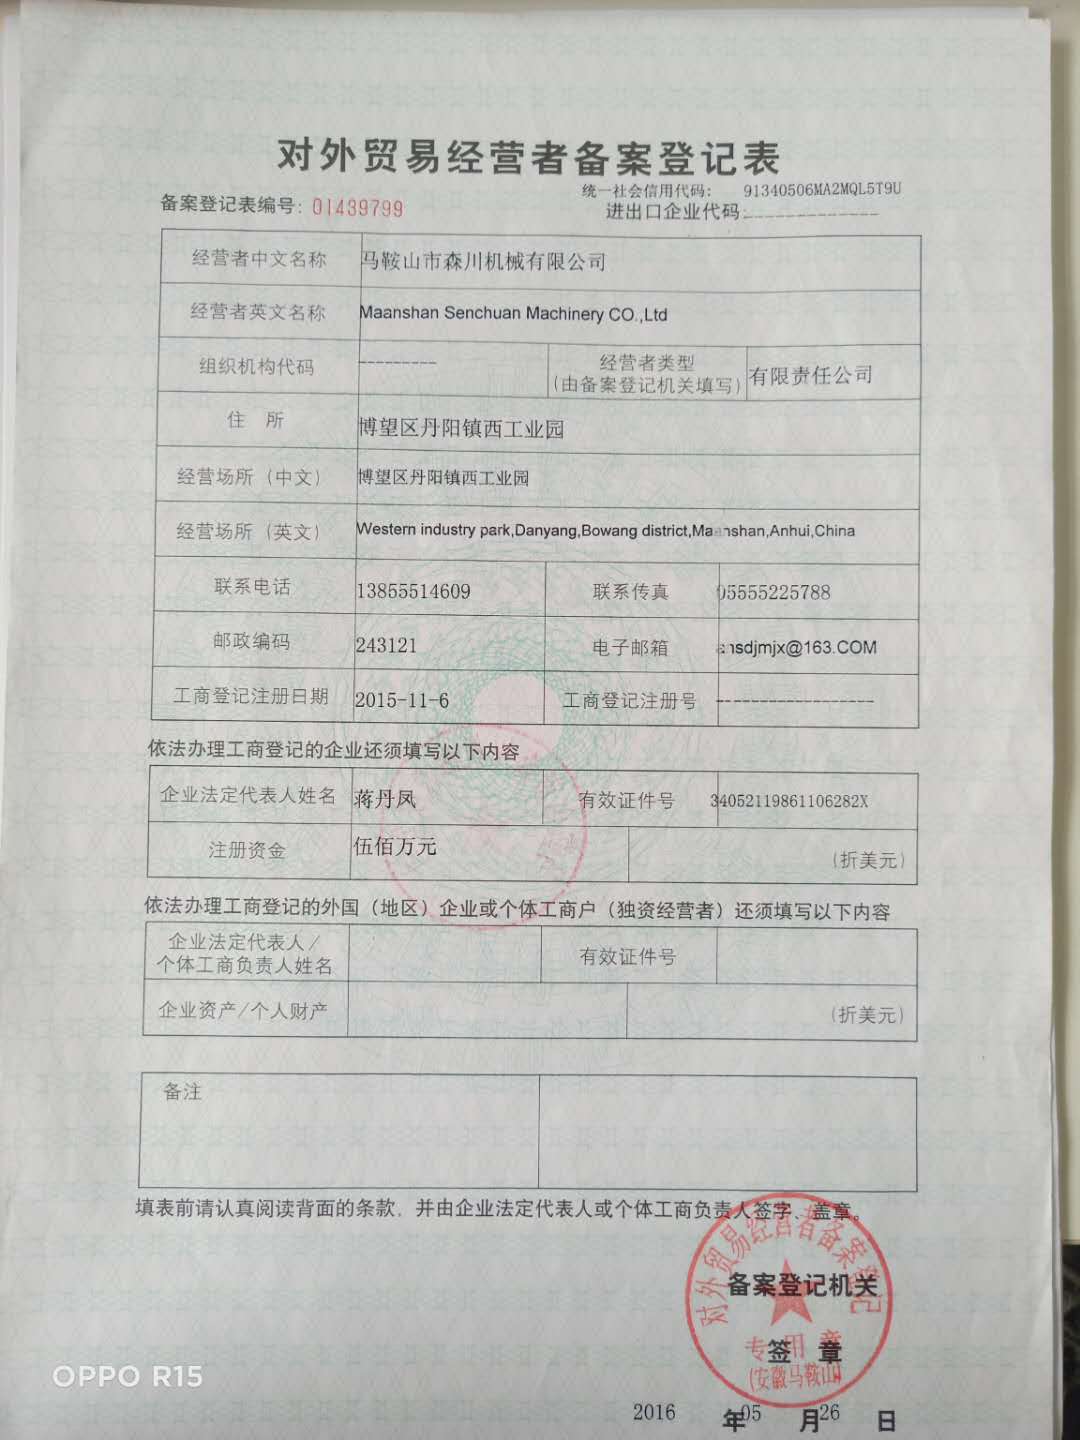 对外贸易经营者备案登记表
统一社会信用代码: 91340506MA2MQL5T9U
备案登记表编号: 01439799
进出口企业代码: -------------
经营者中文名称 马鞍山市森川机械有限公司
经营者英文名称 Maanshan Senchuan Machinery CO.,Ltd
组织机构代码 --------- 经营者类型 (由备案登记机关填写) 有限责任公司
住 所 博望区丹阳镇西工业园
经营场所（中文） 博望区丹阳镇西工业园
经营场所（英文） Western industry park,Danyang,Bowang district,Maanshan,Anhui,China
联系电话 13855514609 联系传真 05555225788
邮政编码 243121 电子邮箱 nsdjmjx@163.COM
工商登记注册日期 2015-11-6 工商登记注册号 ------------------
依法办理工商登记的企业还须填写以下内容
企业法定代表人姓名 蒋丹凤 有效证件号 34052119861106282X
注册资金 伍佰万元 (折美元)
依法办理工商登记的外国（地区）企业或个体工商户（独资经营者）还须填写以下内容
企业法定代表人/
个体工商负责人姓名 有效证件号
企业资产/个人财产 (折美元)
备注
填表前请认真阅读背面的条款，并由企业法定代表人或个体工商负责人签字、盖章。
对外贸易经营者备案登记
备案登记机关
专用章
签 章
(安徽马鞍山)
2016 年 05 月 26 日
OPPO R15